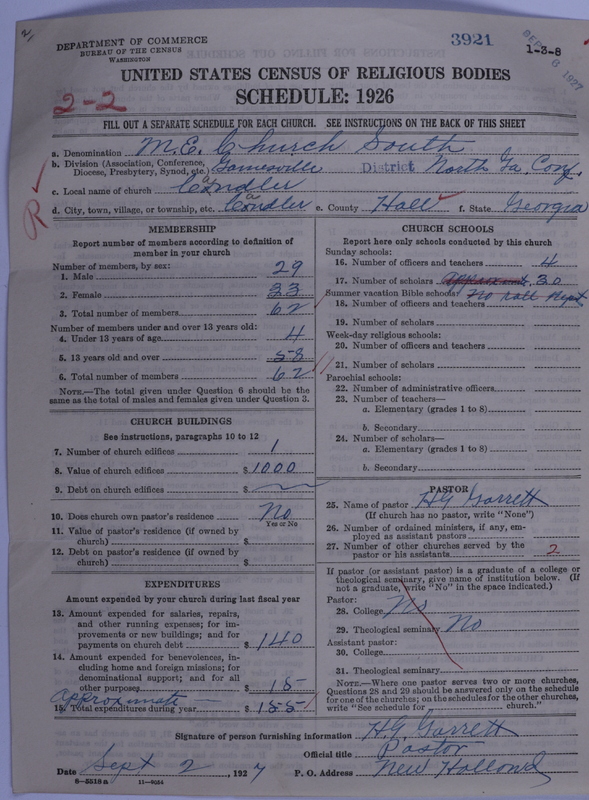 DEPARTMENT OF COMMERCE
BUREAU OF THE CENSUS
WASHINGTON
3921
1-3-8
SEP 8 1927
UNITED STATES CENSUS OF RELIGIOUS BODIES
SCHEDULE: 1926
2-2
FILL OUT A SEPARATE SCHEDULE FOR EACH CHURCH. SEE INSTRUCTIONS ON THE BACK OF THIS SHEET
a. Denomination M.E. Church South
b. Division (Association, Conference, Diocese, Presbytery, Synod, etc.) Gainesville District North Ga. Conf.
c. Local name of church Candler
d. City, town, village, or township, etc. Candler e. County Hall f. State Georgia
R
MEMBERSHIP
Report number of members according to definition of
member in your church
Number of members, by sex:
1. Male 29
2. Female 33
3. Total number of members 62
Number of members under and over 13 years old:
4. Under 13 years of age 4
5. 13 years old and over 58
6. Total number of members 62
NOTE.—The total given under Question 6 should be the
same as the total of males and females given under Question 3.
CHURCH BUILDINGS
See instructions, paragraphs 10 to 12
7. Number of church edifices 1
8. Value of church edifices $ 1000
9. Debt on church edifices $
10. Does church own pastor's residence No
Yes or No
11. Value of pastor's residence (if owned by
church) $
12. Debt on pastor's residence (if owned by
church) $
EXPENDITURES
Amount expended by your church during last fiscal year
13. Amount expended for salaries, repairs,
and other running expenses; for im-
provements or new buildings; and for
payments on church debt $ 140
14. Amount expended for benevolences, in-
cluding home and foreign missions; for
denominational support; and for all
other purposes $ 15
approximate
15. Total expenditures during year $ 155
CHURCH SCHOOLS
Report here only schools conducted by this church
Sunday schools:
16. Number of officers and teachers 4
17. Number of scholars 30
Summer vacation Bible schools: No roll kept
18. Number of officers and teachers
19. Number of scholars
Week-day religious schools:
20. Number of officers and teachers
21. Number of scholars
Parochial schools:
22. Number of administrative officers
23. Number of teachers—
a. Elementary (grades 1 to 8)
b. Secondary
24. Number of scholars—
a. Elementary (grades 1 to 8)
b. Secondary
PASTOR
25. Name of pastor H G Garrett
(If church has no pastor, write "None")
26. Number of ordained ministers, if any, em-
ployed as assistant pastors
27. Number of other churches served by the
pastor or his assistants 2
If pastor (or assistant pastor) is a graduate of a college or
theological seminary, give name of institution below. (If
not a graduate, write "No" in the space indicated.)
Pastor:
28. College No
29. Theological seminary No
Assistant pastor:
30. College
31. Theological seminary
NOTE.—Where one pastor serves two or more churches,
Questions 28 and 29 should be answered only on the schedule
for one of the churches; on the schedules for the other churches,
write "See schedule for church."
Signature of person furnishing information H.G. Garrett
Official title Pastor
Date Sept 2, 1927 P. O. Address New Holland
8-5518a 11-9054